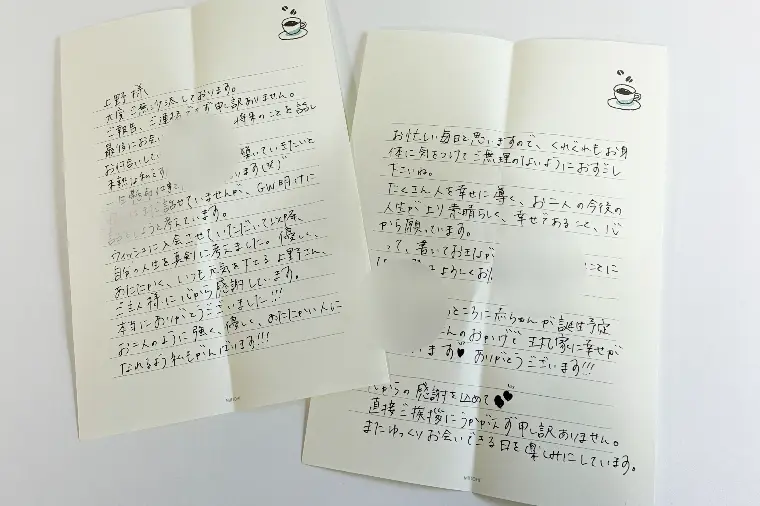 上野様
大変ご無沙汰しております。
ご報告、ご連絡できず申し訳ありません。
最後にお会い 将来のことを話し
お付き合いして 頂いていきたいと
未熟な私です いますが
に話せていませんが、GW明けに
ようと考えています。
ウィッシュに入会させていただいて以降、
自分の人生を真剣に考えました。優しく、
おだやかで、いつも元気を下さる上野さん、
ご主人様に心から感謝しています。
本当にありがとうございました!!!
お二人のように強く、優しく、おだやかい人に
なれるよう私もがんばります!!!
お忙しい毎日と思いますので、くれぐれもお身
体に気をつけてご無理のないようにおすごし
下さいね。
たくさん人を幸せに導く、お二人の今後の
人生がより素晴らしく、幸せであることを、心
から願っています。
って、書いておきながら ことに
よろしくお
ところに赤ちゃんが誕生予定
人のおかげで 家に幸せが
います♥ ありがとうございます!!!
心からの感謝を込めて
直接ご挨拶にうかがえず申し訳ありません。
またゆっくりお会いできる日を楽しみにしています。